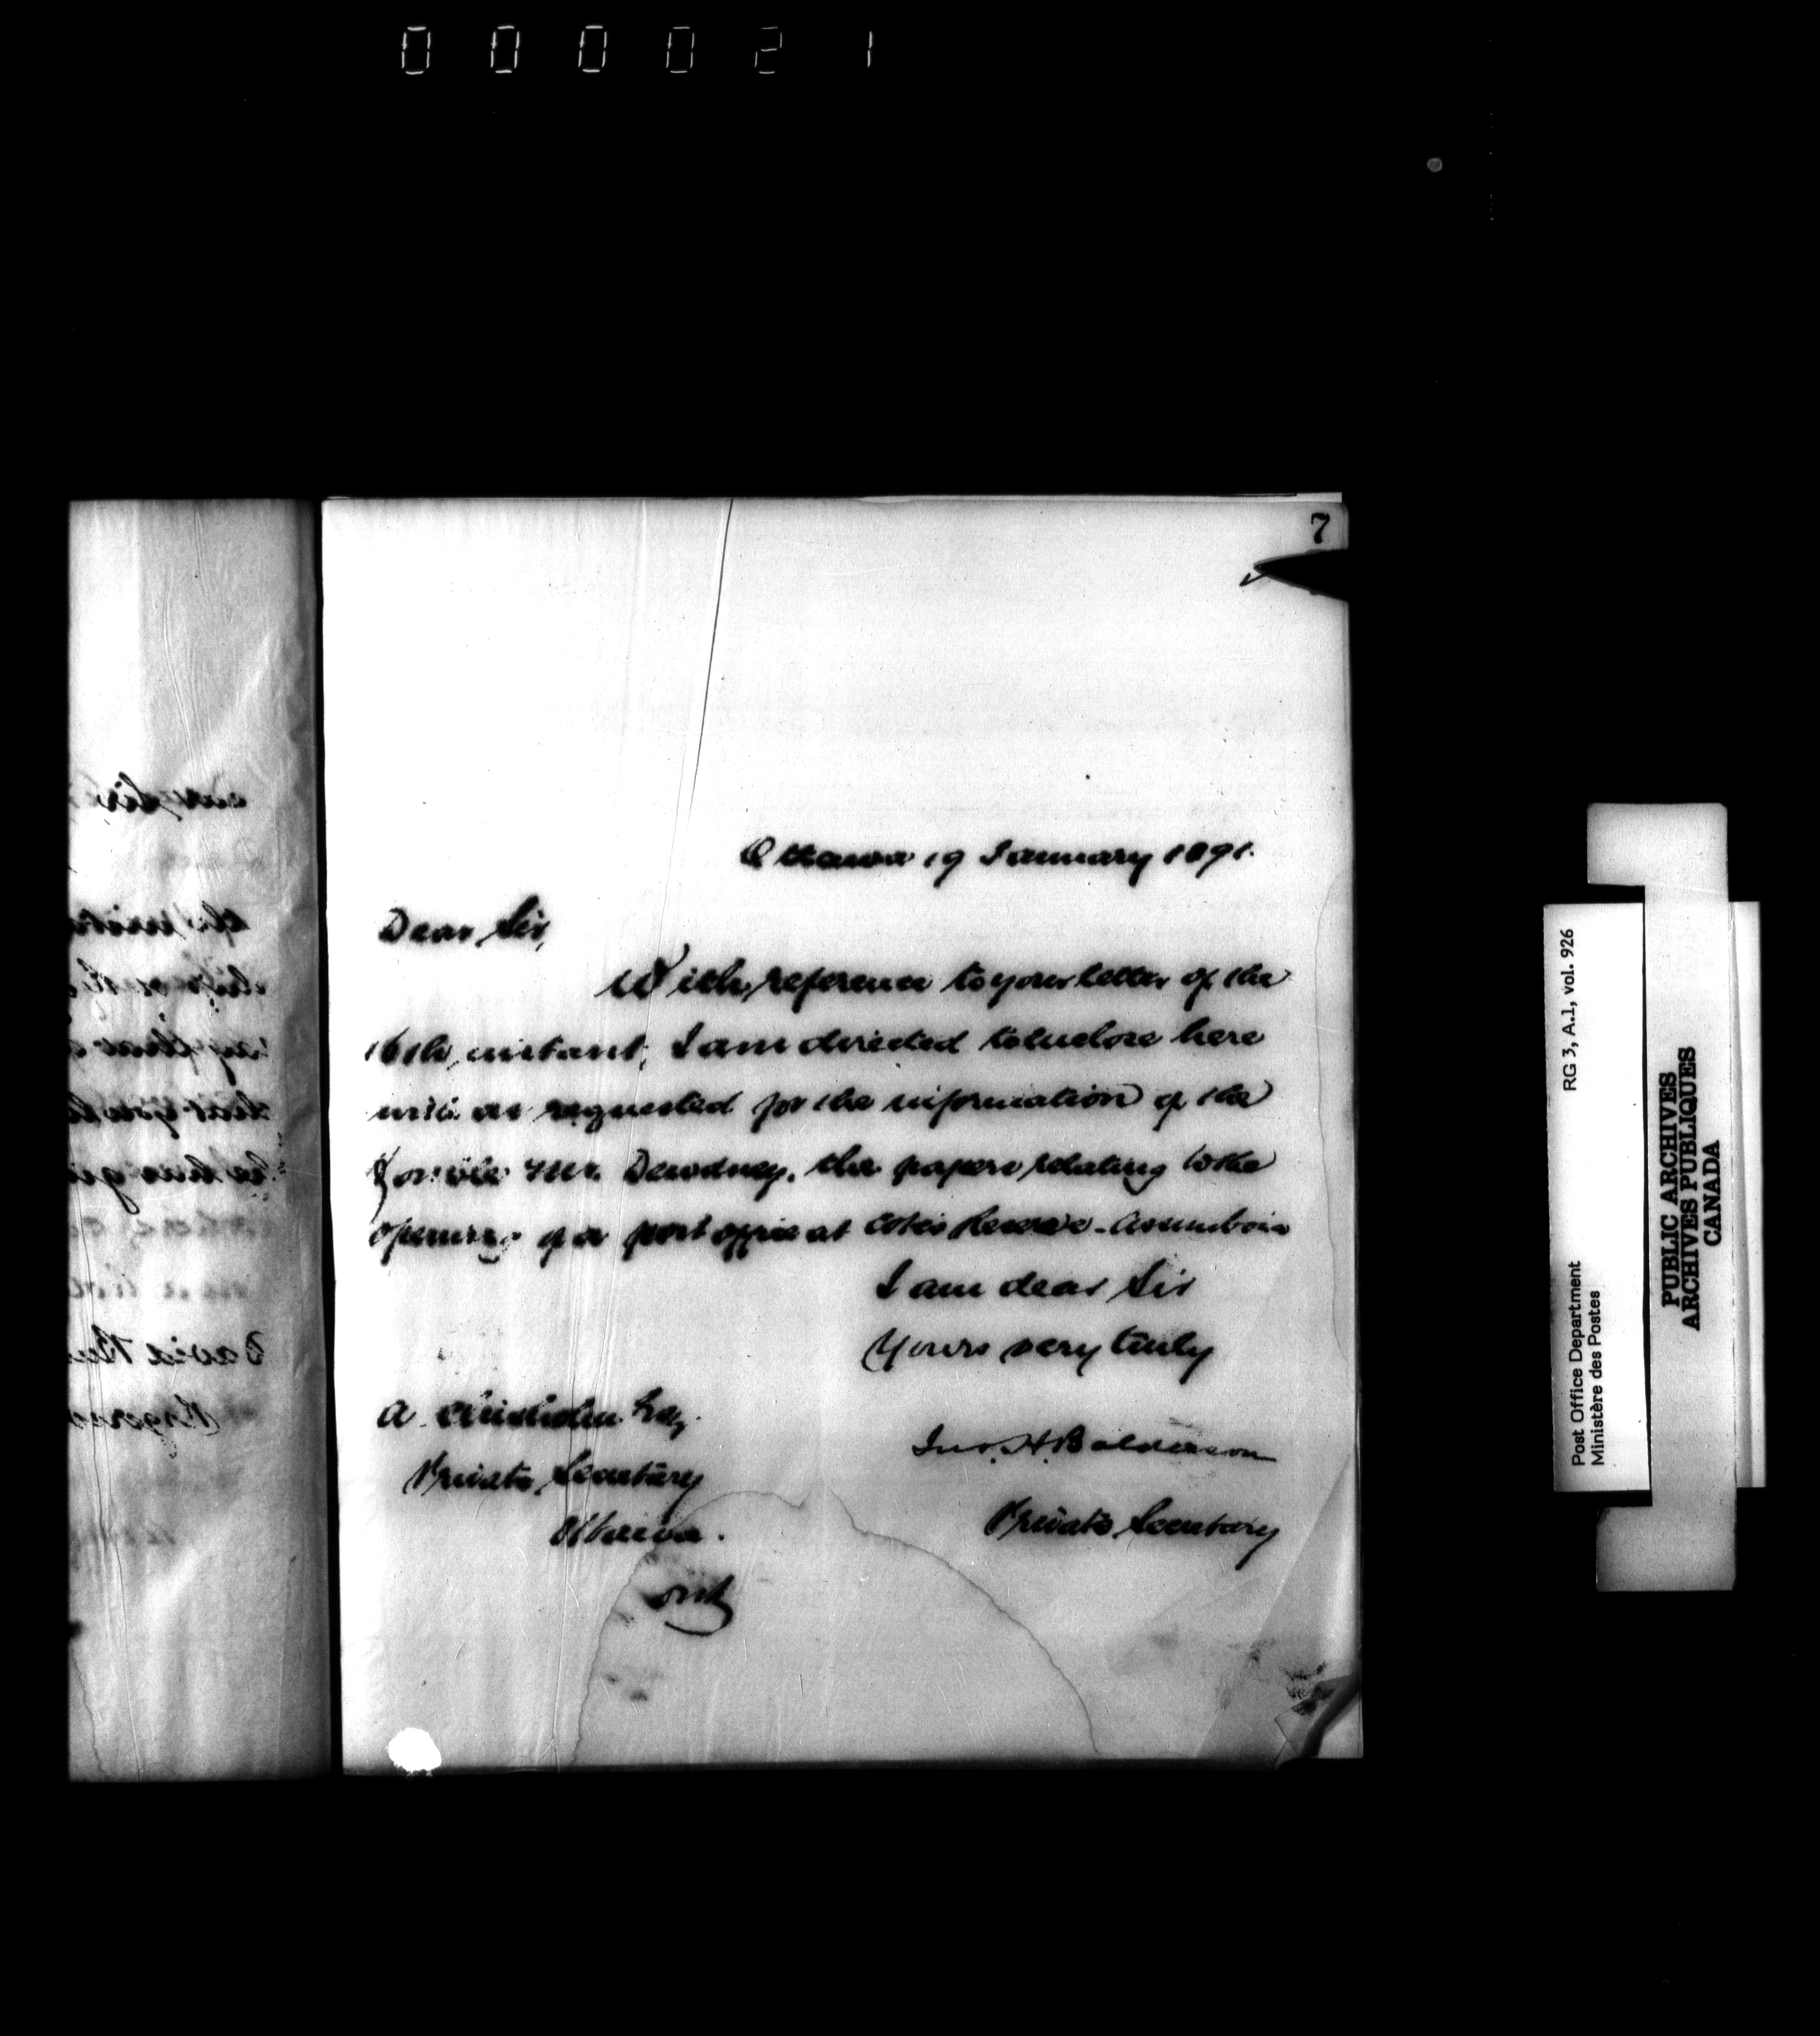 000021
7
Ottawa 19 January 1891.
Dear Sir,
With reference to your letter of the
16th instant, I am directed to enclose here
with as requested for the information of the
Honble Mr. Dewdney, the papers relating to the
opening of a post office at Cote's Reserve - Assiniboia
I am dear Sir
Yours very truly
Jno. H. Balderson
Private Secretary
A Chisholm Esq.
Private Secretary
Ottawa.
Ont
RG 3, A.1, vol. 926
Post Office Department
Ministère des Postes
PUBLIC ARCHIVES
ARCHIVES PUBLIQUES
CANADA